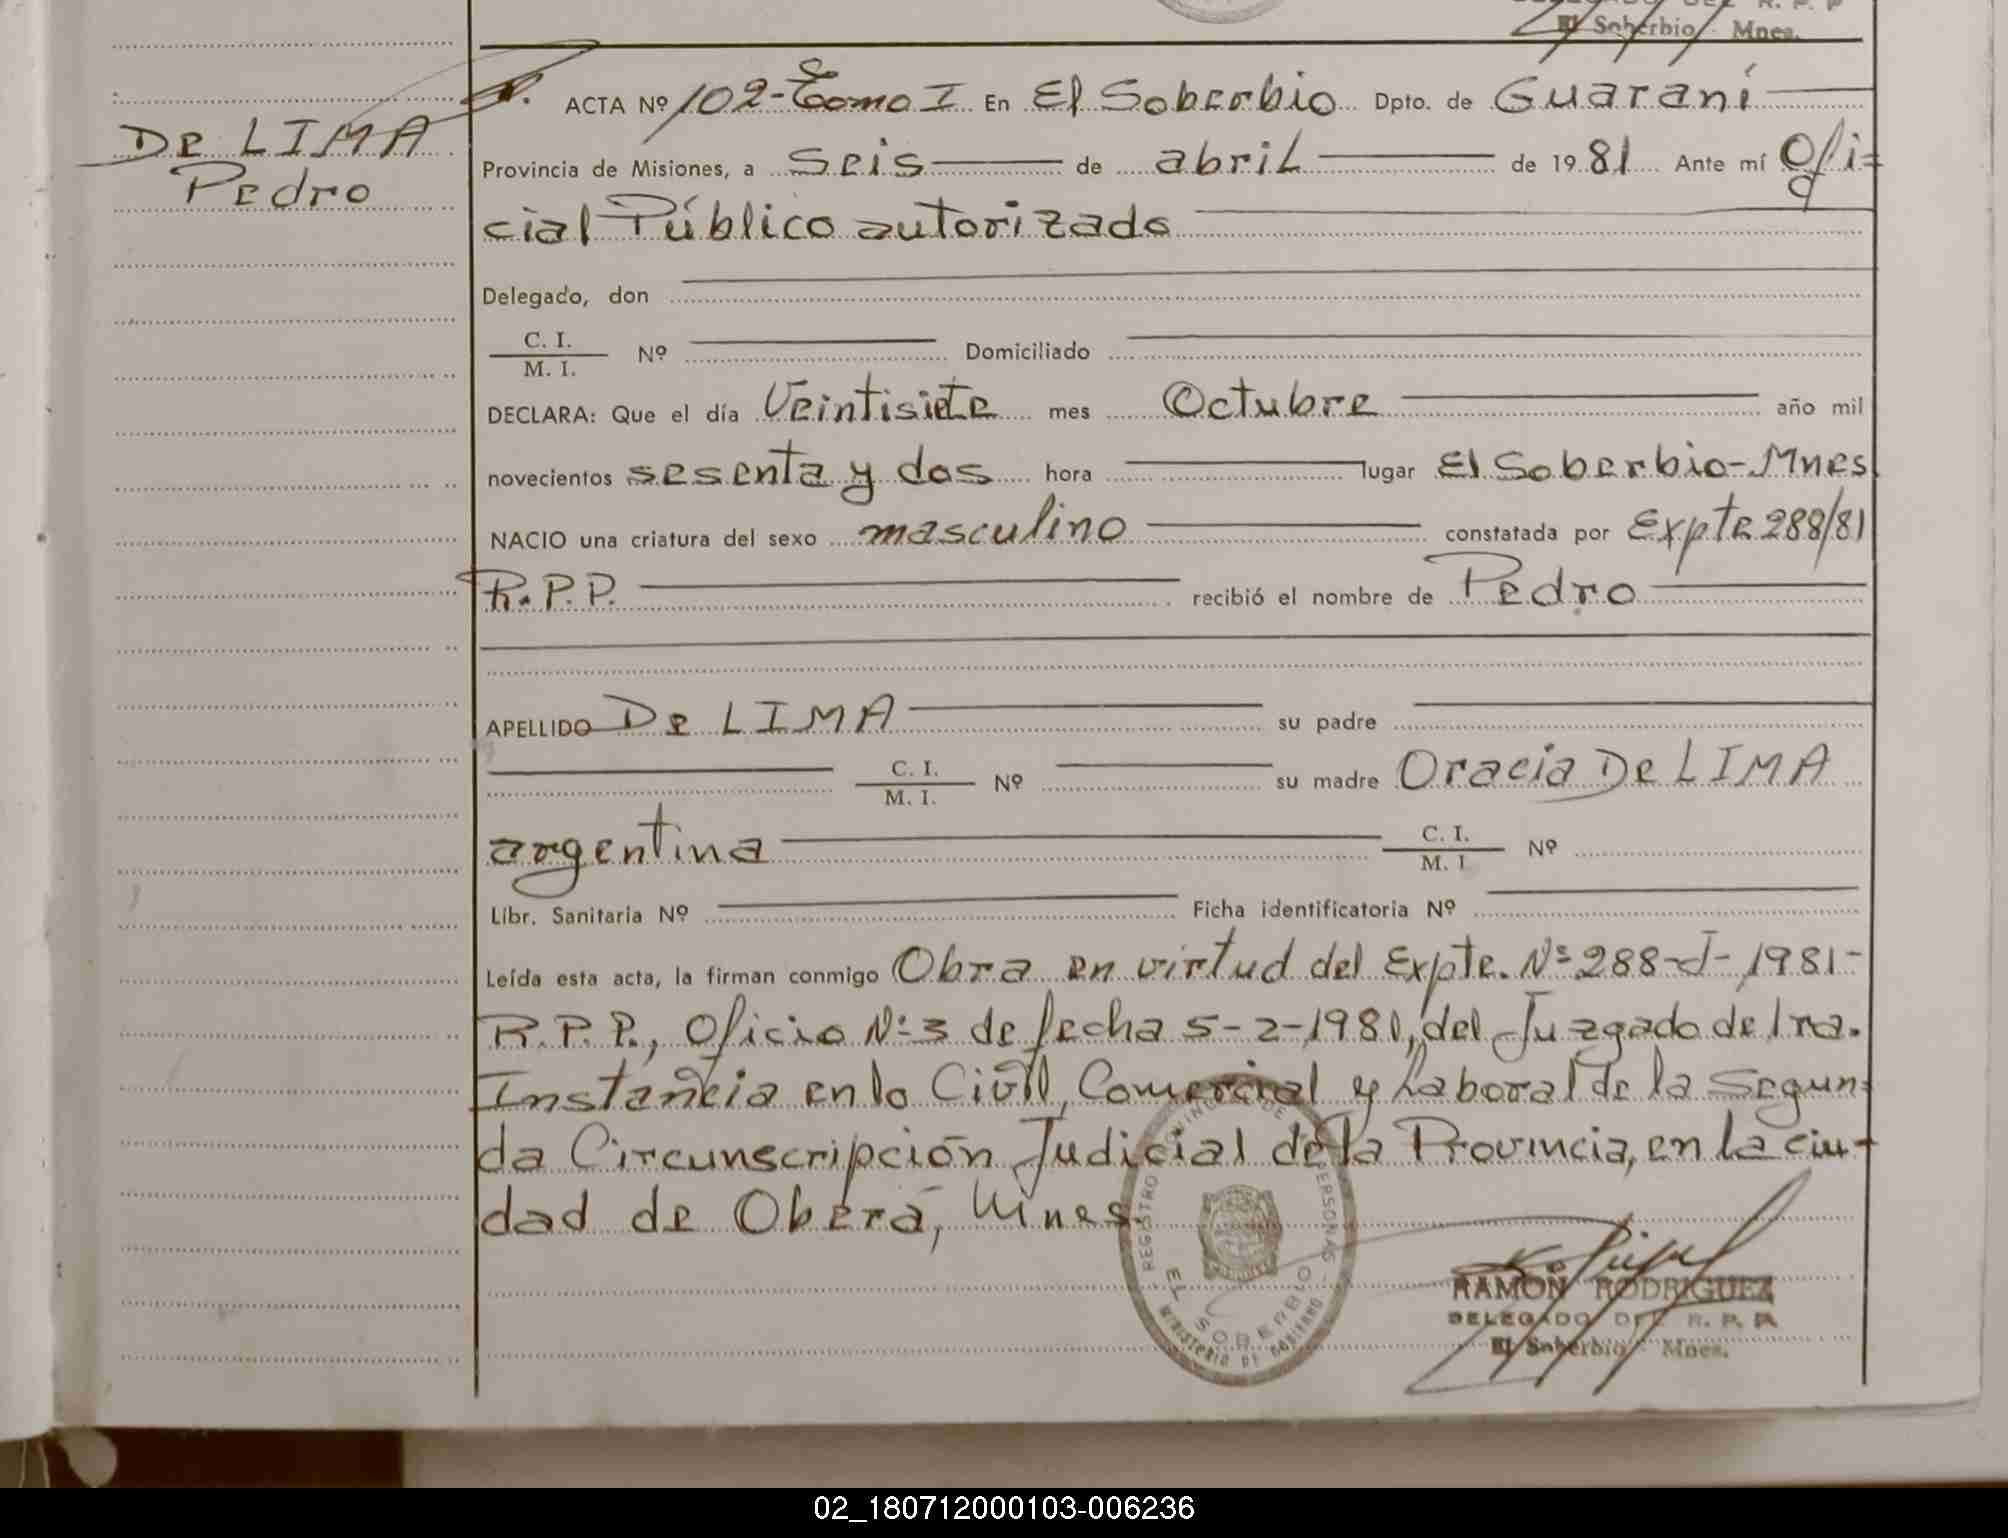 DELEGADO DEL R. P. P
El Soberbio - Mnes.
De LIMA
Pedro
ACTA Nº 102-Tomo I En El Soberbio Dpto. de Guaraní
Provincia de Misiones, a seis de abril de 1981 Ante mí Ofi=
cial Público autorizado
Delegado, don
C. I.
M. I. Nº Domiciliado
DECLARA: Que el día Veintisiete mes Octubre año mil
novecientos sesenta y dos hora lugar El Soberbio-Mnes
NACIO una criatura del sexo masculino constatada por Expte 288/81
R.P.P. recibió el nombre de Pedro
APELLIDO De LIMA su padre
C. I.
M. I. Nº su madre Oracia De LIMA
argentina C. I.
M. I Nº
Libr. Sanitaria Nº Ficha identificatoria Nº
Leída esta acta, la firman conmigo Obra en virtud del Expte. Nº 288-J-1981-
R.P.P., Oficio Nº 3 de fecha 5-2-1981, del Juzgado de 1ra.
Instancia en lo Civil, Comercial y Laboral de la Segun=
da Circunscripción Judicial de la Provincia, en la ciu-
dad de Oberá, Mnes.
REGISTRO PROVINCIAL DE LAS PERSONAS
EL SOBERBIO
MINISTERIO DE GOBIERNO
RAMON RODRIGUEZ
DELEGADO DEL R. P. P.
El Soberbio - Mnes.
02_180712000103-006236